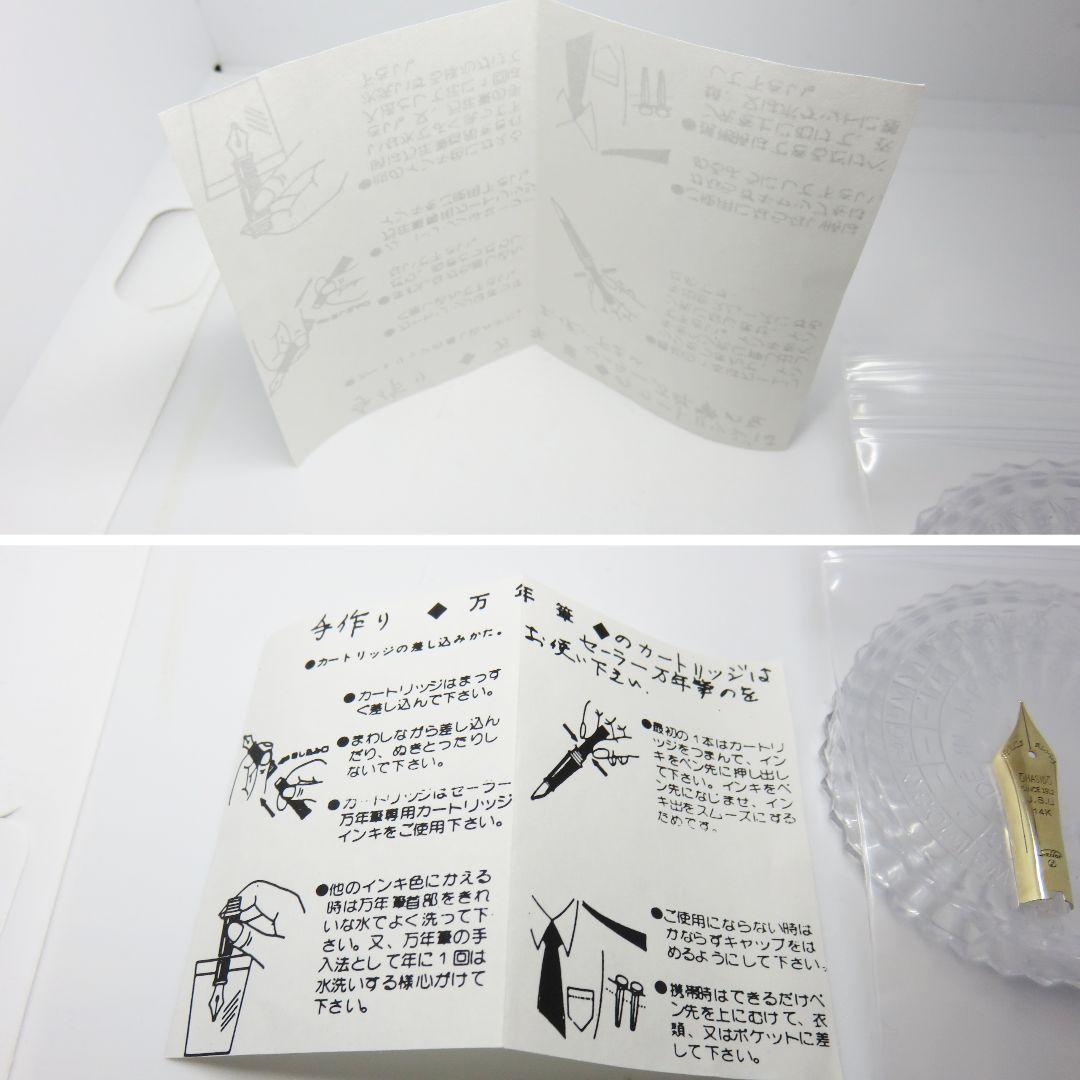 手作り ◆ 万年筆 ◆のカートリッジは
セーラー万年筆のを
お使い下さい.
●カートリッジの差し込みかた。
●カートリッジはまっす
ぐ差し込んで下さい。
差し込み口
●まわしながら差し込ん
だり、ぬきとったりし
ないで下さい。
●カートリッジはセーラー
万年筆専用カートリッジ
インキをご使用下さい。
●他のインキ色にかえる
時は万年筆首部をきれ
いな水でよく洗って下
さい。又、万年筆の手
入法として年に1回は
水洗いする様心がけて
下さい。
●最初の1本はカートリ
ッジをつまんで、イン
キをペン先に押し出し
て下さい。インキをペ
ン先になじませ、イン
キ出をスムーズにする
ためです。
●ご使用にならない時は
かならずキャップをは
めるようにして下さい。
●携帯時はできるだけペ
ン先を上にむけて、衣
類、又はポケットに差
して下さい。
14K
Sailor